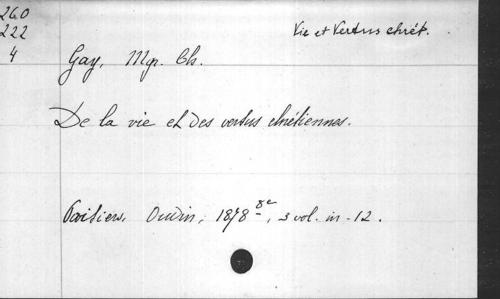 260
222
4
Vie et Vertus chrét.
Gay, Mgr. Ch.
De la vie et des vertus chrétiennes.
Poitiers, Oudin, 1878 8e, 3 vol. in-12.